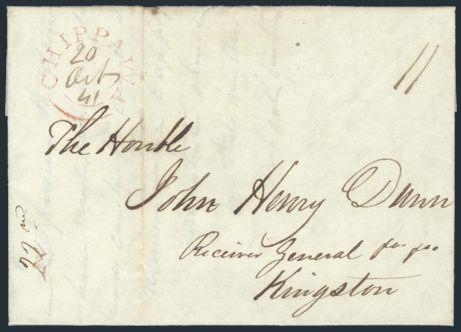 CHIPPAWA
20
Oct
41
11
The Honble
John Henry Dunn
Receiver General
Kingston